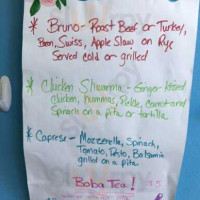 * Bruno - Roast Beef or Turkey,
Swiss, Apple Slaw on Rye
Served cold or grilled
* Chicken Shwarma - Ginger
Chicken, Hummus, Pickle, Carrot and
Spinach on a pita or tortilla
* Caprese - Mozzerella, Spinach,
Tomato, Pesto, Balsamic
grilled on a pita
Boba Tea!